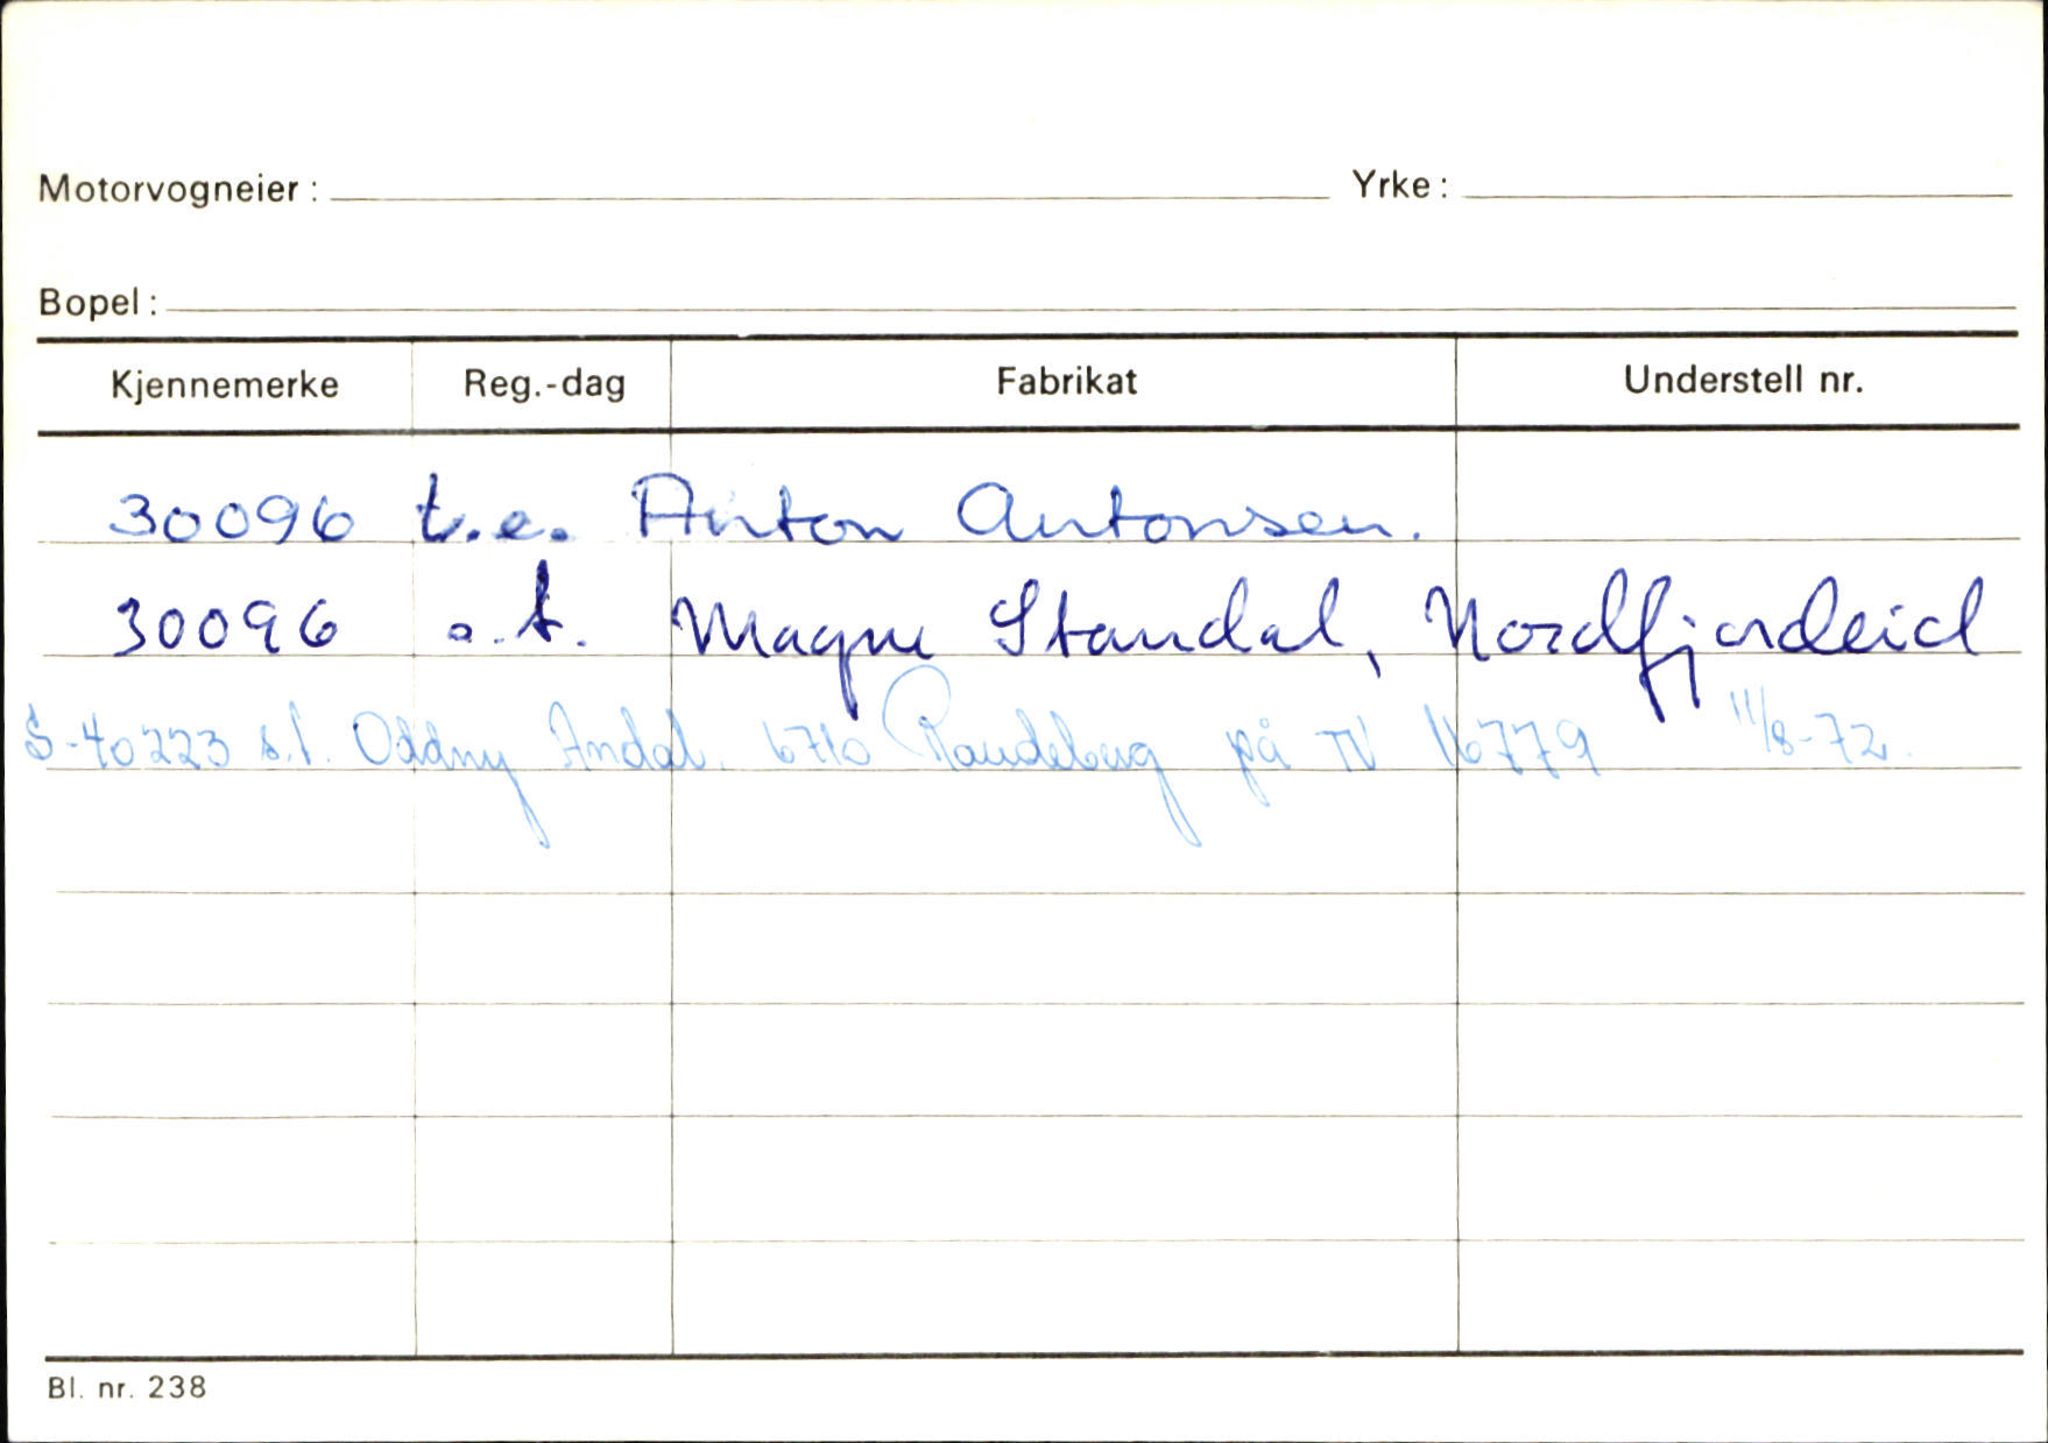 Motorvogneier: Yrke:
Bopel:
Kjennemerke Reg.-dag Fabrikat Understell nr.
30096 t.e. Anton Antonsen.
30096 o.t. Magne Standal, Nordfjordeid
S-40223 s.t. Oddny Andal. 6710 Raudeberg på TV 16779 11/8-72.
Bl. nr. 238